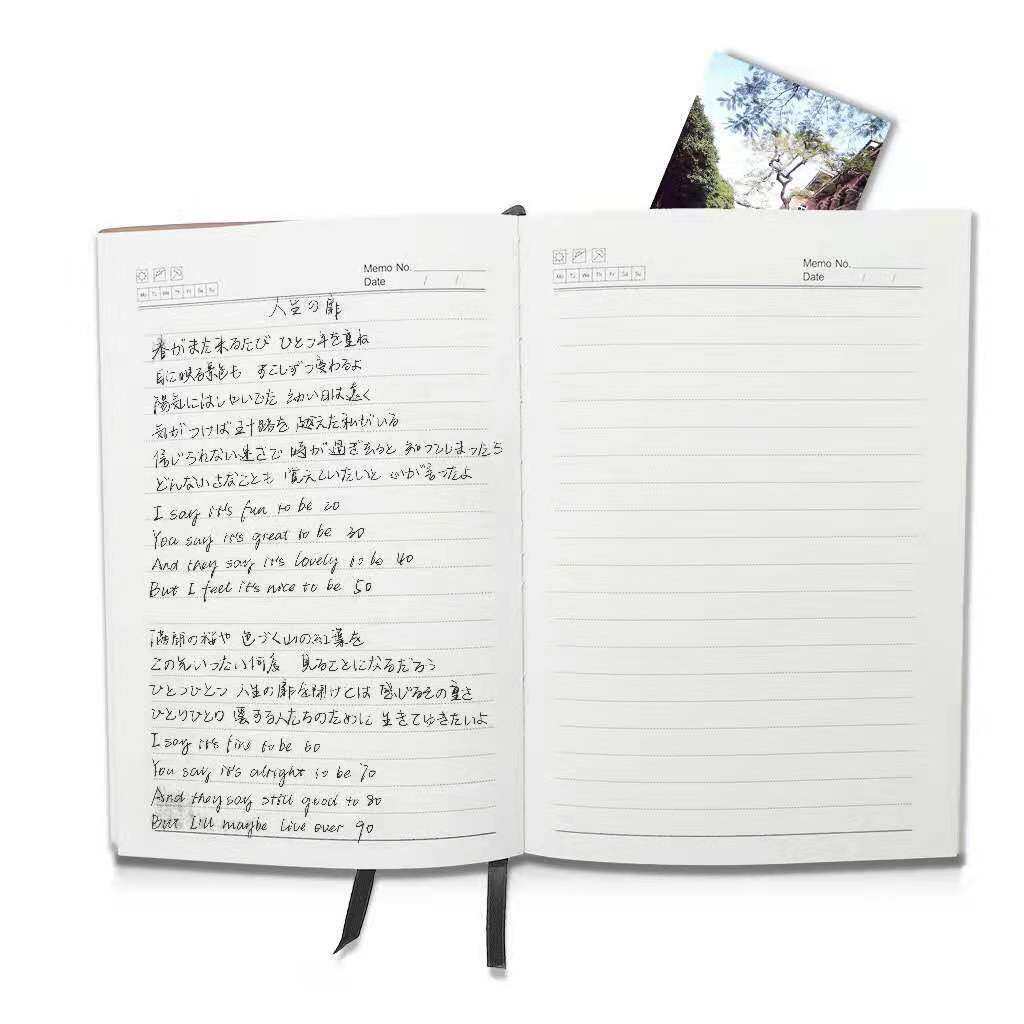 Memo No.
Mo Tu We Th Fr Sa Su
Date / /
人生の扉
春がまた来るたび ひとつ年を重ね
目に映る景色も すこしずつ変わるよ
陽気にはしゃいでた 幼い日は遠く
気がつけば五十路を 越えた私がいる
信じられない速さで 時が過ぎ去ると 知ってしまったら
どんな小さなことも 覚えていたいと 心が言ったよ
I say it's fun to be 20
You say it's great to be 30
And they say it's lovely to be 40
But I feel it's nice to be 50
満開の桜や 色づく山の紅葉を
この先いったい何度 見ることになるだろう
ひとつひとつ 人生の扉を開けては 感じるその重さ
ひとりひとり 愛する人たちのために 生きてゆきたいよ
I say it's fine to be 60
You say it's alright to be 70
And they say still good to 80
But I'll maybe live over 90
Memo No.
Mo Tu We Th Fr Sa Su
Date / /